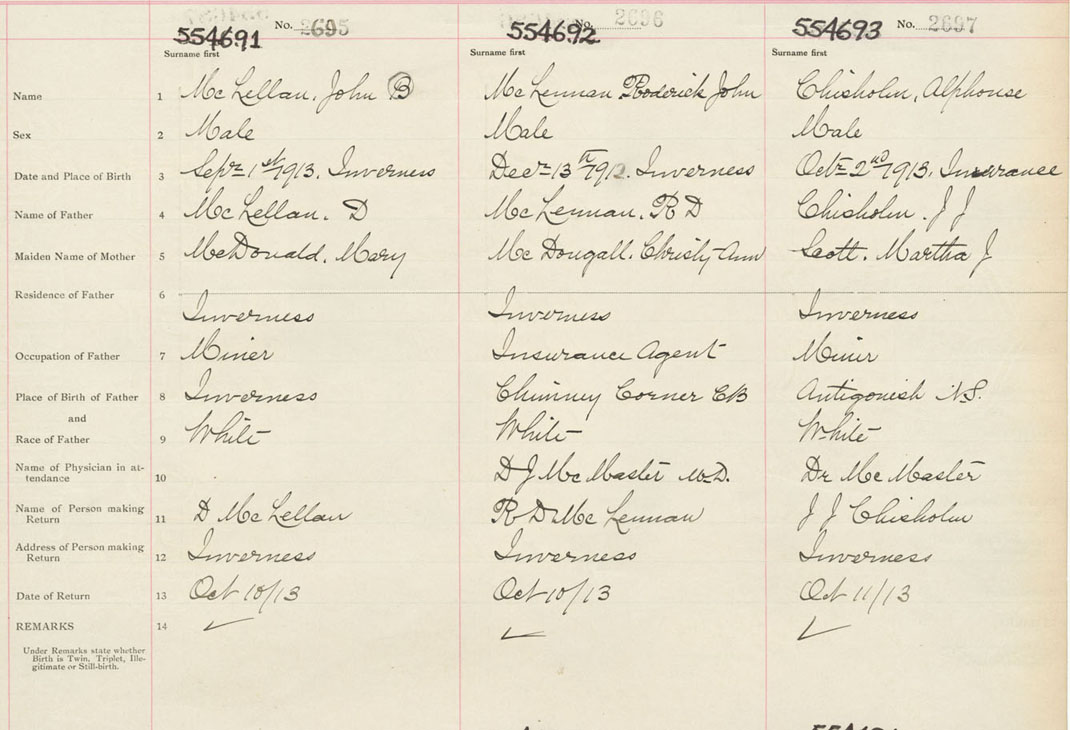 554691 No. 2695 554692 No. 2696 554693 No. 2697
Surname first Surname first Surname first
Name 1 McLellan, John B McLennan Roderick John Chisholm, Alphonse
Sex 2 Male Male Male
Date and Place of Birth 3 Sepr 1st 1913. Inverness Decr 13th 1912. Inverness Octr 2nd 1913. Insurance
Name of Father 4 McLellan. D McLennan. R D Chisholm. J J
Maiden Name of Mother 5 McDonald. Mary McDougall. Christy-Ann Scott. Martha J
Residence of Father 6
Inverness Inverness Inverness
Occupation of Father 7 Miner Insurance Agent Miner
Place of Birth of Father 8 Inverness Chimney Corner CB Antigonish N.S.
and
Race of Father 9 White White White
Name of Physician in at-
tendance 10 D J McMaster M.D. Dr McMaster
Name of Person making
Return 11 D McLellan R D McLennan J J Chisholm
Address of Person making
Return 12 Inverness Inverness Inverness
Date of Return 13 Oct 10/13 Oct 10/13 Oct 11/13
REMARKS 14
Under Remarks state whether
Birth is Twin, Triplet, Ille-
gitimate or Still-birth.